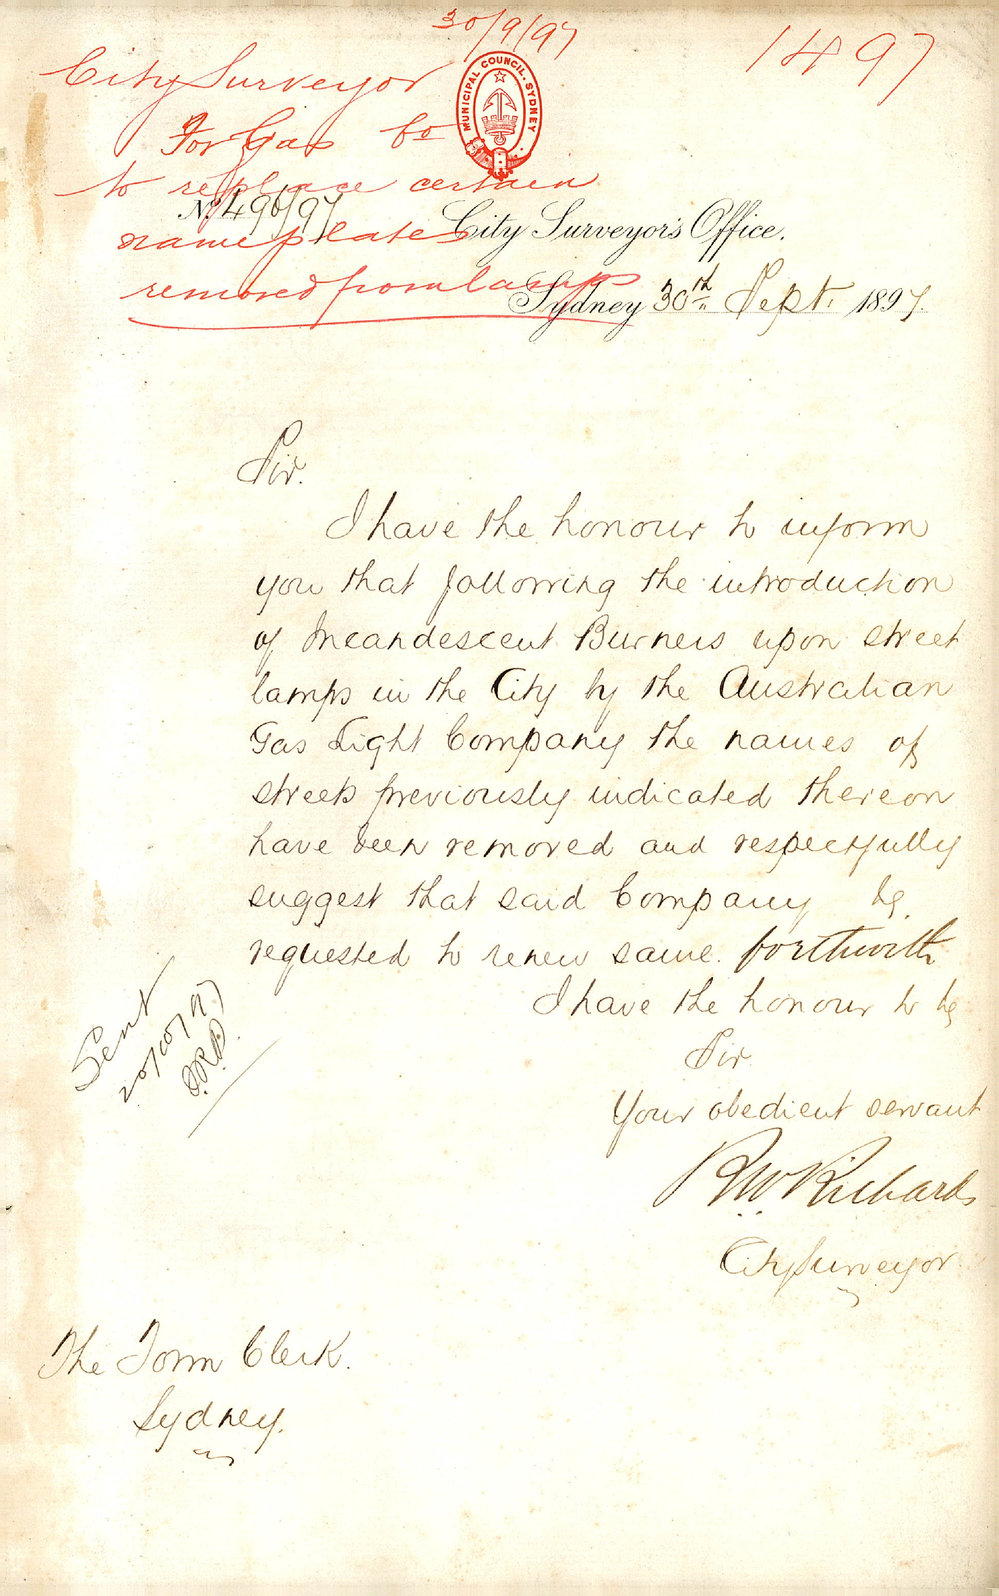 30/9/97
1497
City Surveyor
For Gas Co
to replace certain
name plates
removed from lamps
MUNICIPAL COUNCIL. SYDNEY
No. 496/97
City Surveyor's Office.
Sydney 30th Sept. 1897
Sir.
I have the honour to inform
you that following the introduction
of Incandescent Burners upon street
lamps in the City by the Australian
Gas Light Company the names of
streets previously indicated thereon
have been removed and respectfully
suggest that said Company be
requested to renew same. forthwith
I have the honour to be
Sir
Your obedient servant
R W Richards
City Surveyor
Sent
20/10/97
The Town Clerk.
Sydney.